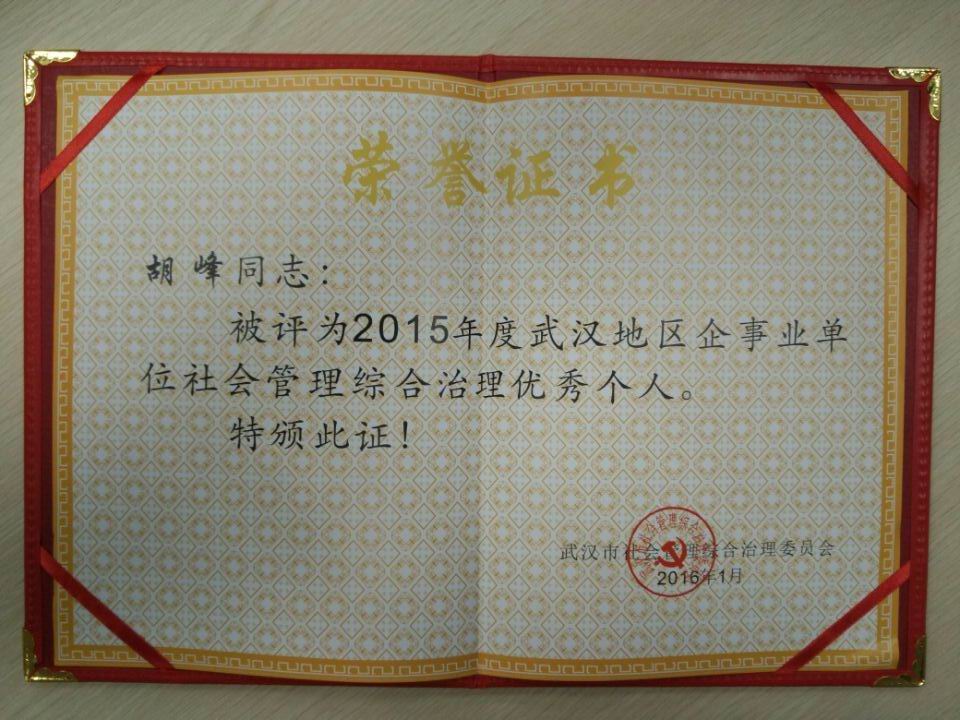 荣誉证书
胡峰同志：
被评为2015年度武汉地区企事业单
位社会管理综合治理优秀个人。
特颁此证！
武汉市社会管理综合治理委员会
2016年1月